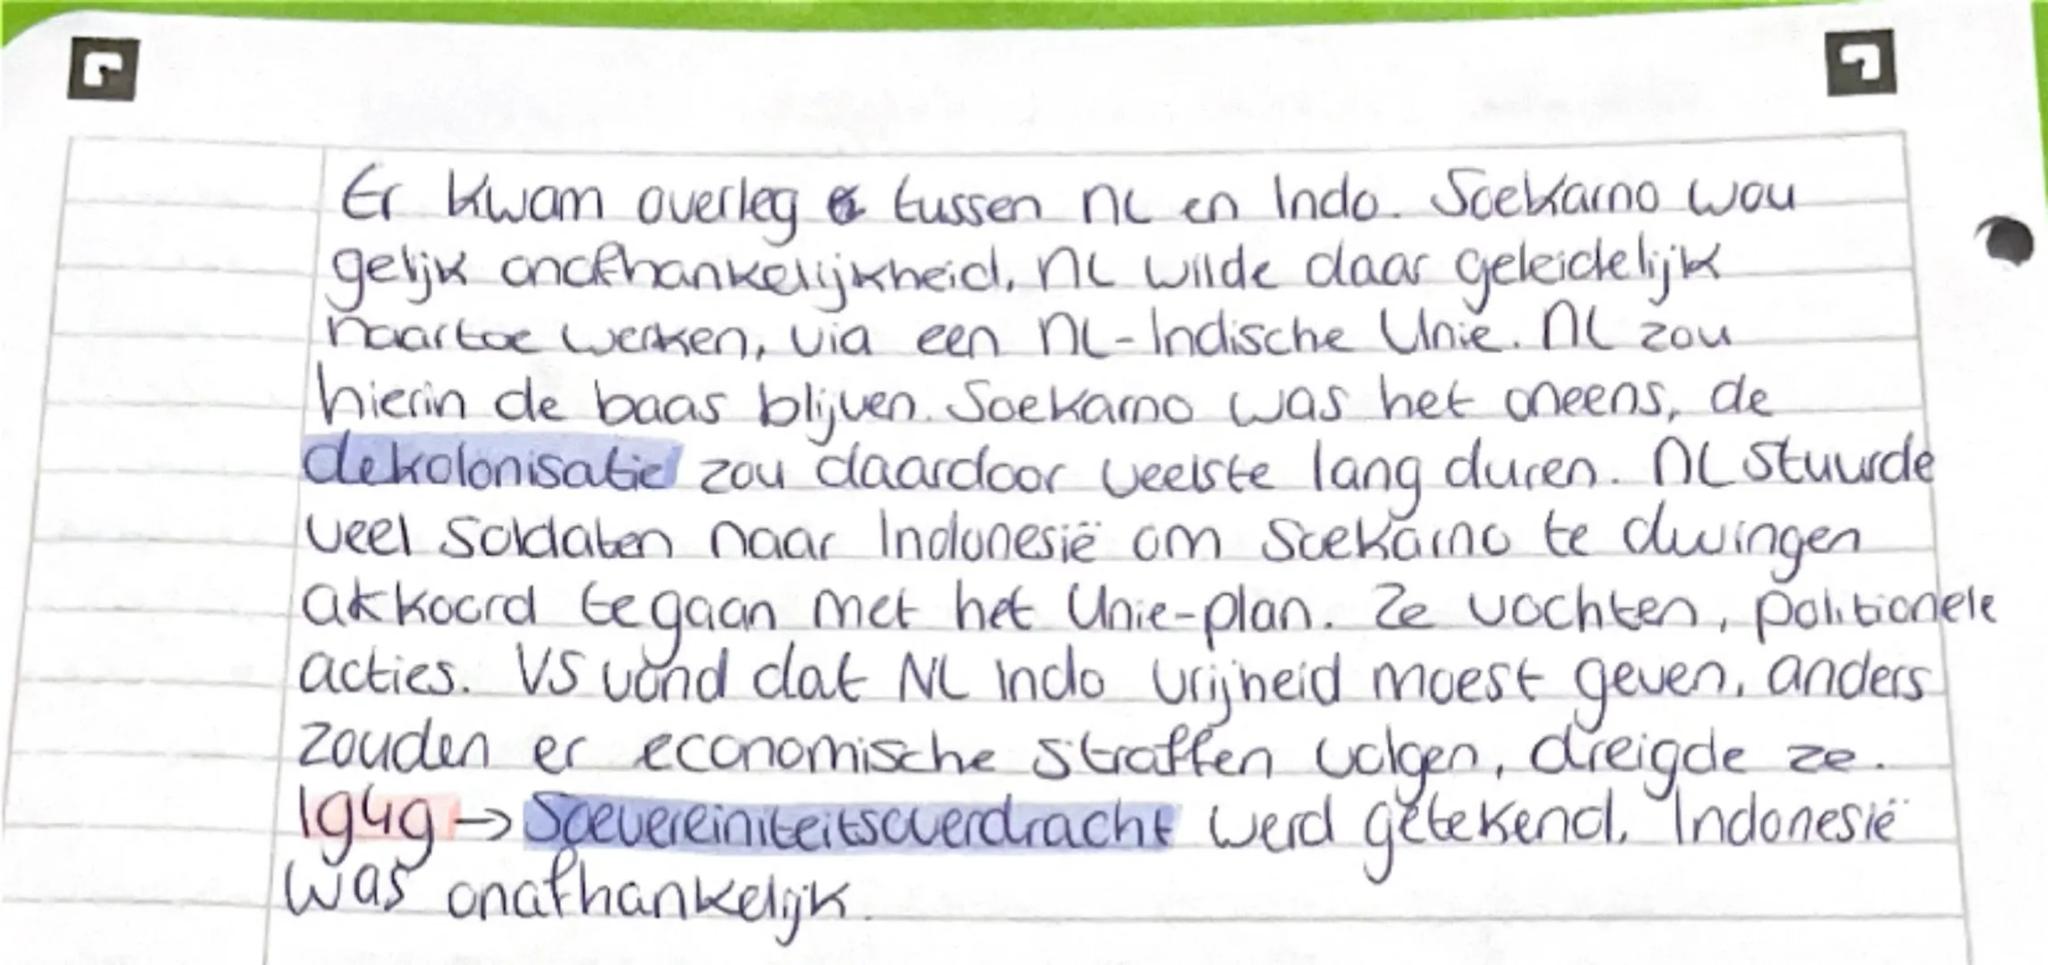 Er kwam overleg tussen NL en Indo. Soekarno wou
gelijk onafhankelijkheid, NL wilde daar geleidelijk
naartoe werken, via een NL-Indische Unie. NL zou
hierin de baas blijven. Soekarno was het oneens, de
dekolonisatie zou daardoor veelste lang duren. NL stuurde
veel soldaten naar Indonesië om Soekarno te dwingen
akkoord te gaan met het Unie-plan. Ze vochten, politionele
acties. VS vond dat NL Indo vrijheid moest geven, anders
zouden er economische straffen volgen, dreigde ze.
1949 → Soevereiniteitsoverdracht werd getekend. Indonesië
was onafhankelijk.